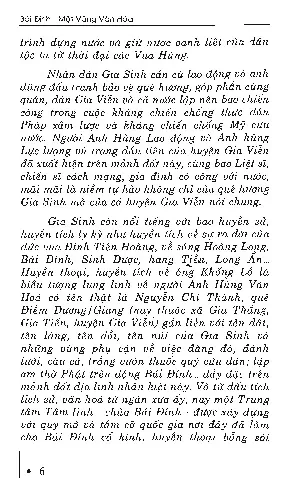 Bái Đính - Một Vùng Văn Hóa
trình dựng nước và giữ nước oanh liệt của dân
tộc ta từ thời đại các Vua Hùng.
Nhân dân Gia Sinh cần cù lao động và anh
dũng đấu tranh bảo vệ quê hương, góp phần cùng
quân, dân Gia Viễn và cả nước lập nên bao chiến
công trong cuộc kháng chiến chống thực dân
Pháp xâm lược và kháng chiến chống Mỹ cứu
nước. Người Anh Hùng Lao động và Anh hùng
Lực lượng vũ trang đầu tiên của huyện Gia Viễn
đã xuất hiện trên mảnh đất này, cùng bao Liệt sĩ,
chiến sĩ cách mạng, gia đình có công với nước,
mãi mãi là niềm tự hào không chỉ của quê hương
Gia Sinh mà của cả huyện Gia Viễn nói chung.
Gia Sinh còn nổi tiếng với bao huyền sử,
huyền tích ly kỳ như huyền tích về sự ra đời của
đức vua Đinh Tiên Hoàng, về sông Hoàng Long,
Bái Đính, Sinh Dược, hang Tiền, Long Ấn...
Huyền thoại, huyền tích về ông Khổng Lồ là
biểu tượng lung linh về người Anh Hùng Văn
Hoá có tên thật là Nguyễn Chí Thành, quê
Điềm Dương/Giang (nay thuộc xã Gia Thắng,
Gia Tiến, huyện Gia Viễn) gắn liền với tên đất,
tên làng, tên đồi, tên núi của Gia Sinh và
những vùng phụ cận về việc đăng đó, đánh
lưới, câu cá, trồng vườn thuốc quý cứu dân; lập
am thờ Phật trên động Bái Đính... đầy đặc trên
mảnh đất địa linh nhân kiệt này. Và từ dấu tích
lịch sử, văn hoá từ ngàn xưa ấy, nay một Trung
tâm Tâm linh - chùa Bái Đính - được xây dựng
với quy mô và tầm cỡ quốc gia nơi đây đã làm
cho Bái Đính cổ kính, huyền thoại bỗng sôi
• 6